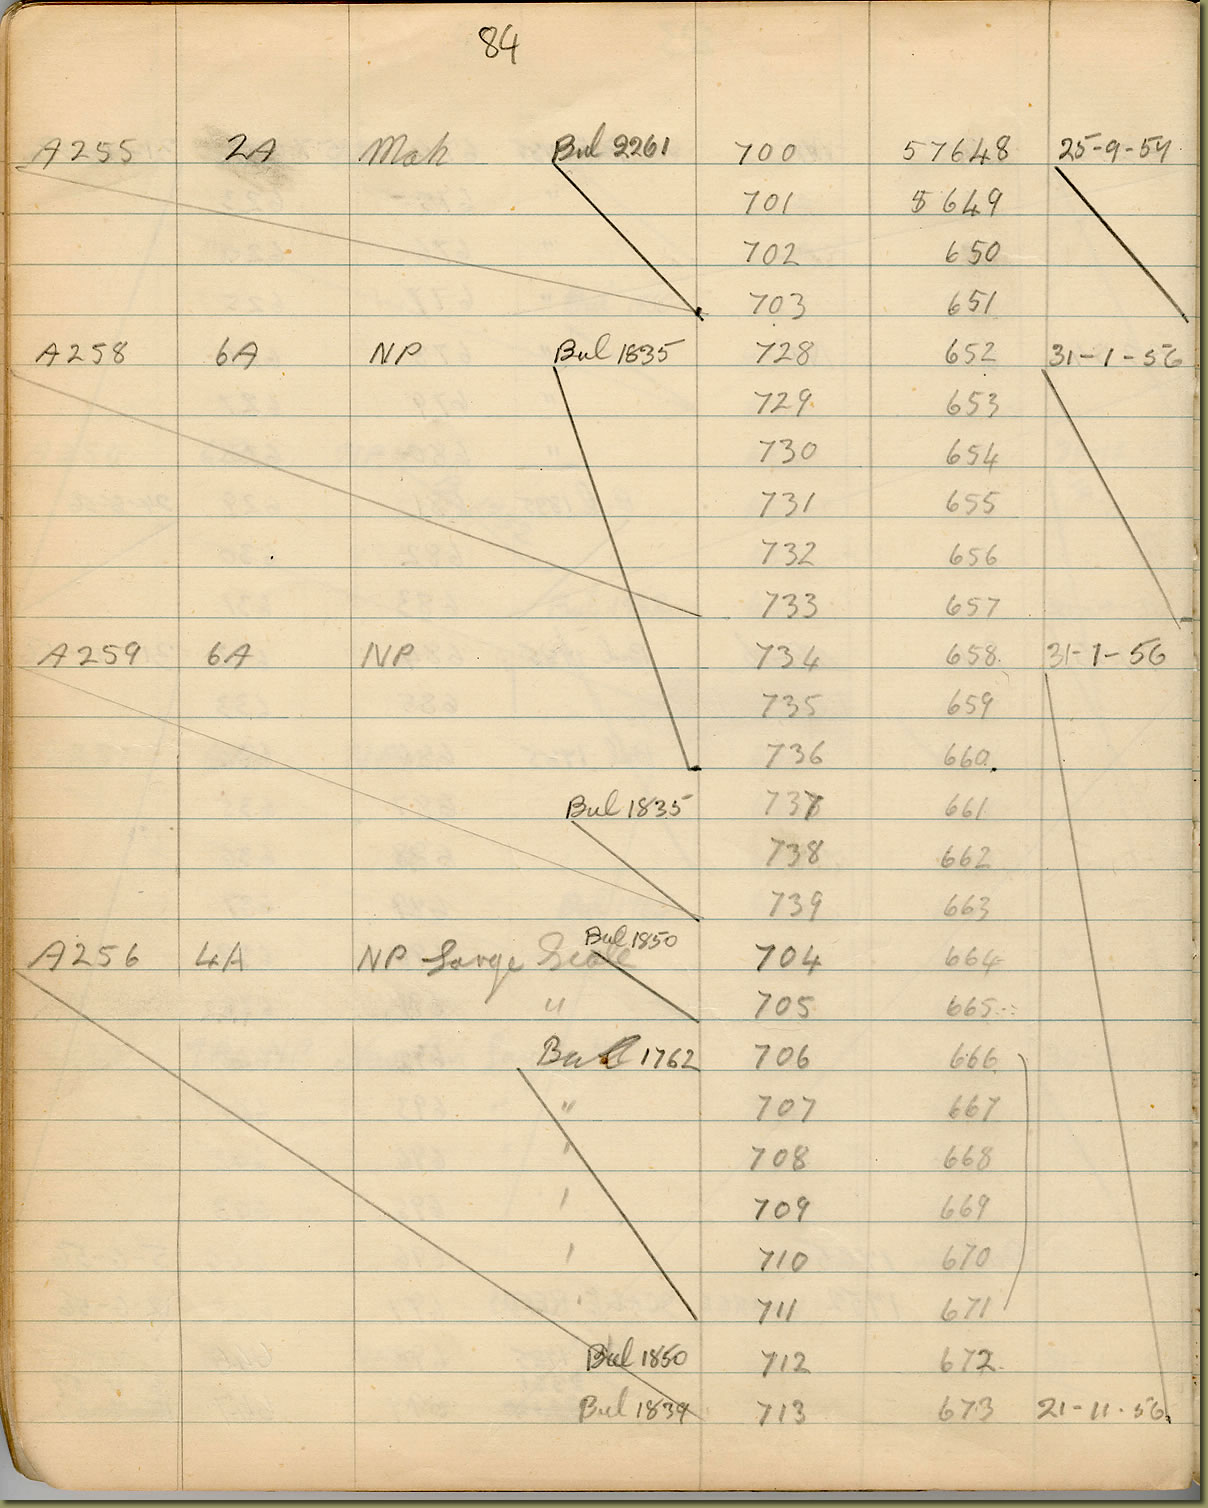 84
A255 2A Mah Bul 2261 700 57648 25-9-54
701 8649
702 650
703 651
A258 6A NP Bul 1835 728 652 31-1-56
729 653
730 654
731 655
732 656
733 657
A259 6A NP 734 658 31-1-56
735 659
736 660
Bul 1835 737 661
738 662
739 663
A256 4A NP Large Scale Bul 1850 704 664
" 705 665
Bul 1762 706 666
" 707 667
" 708 668
" 709 669
" 710 670
" 711 671
Bul 1850 712 672
Bul 1839 713 673 21-11-56